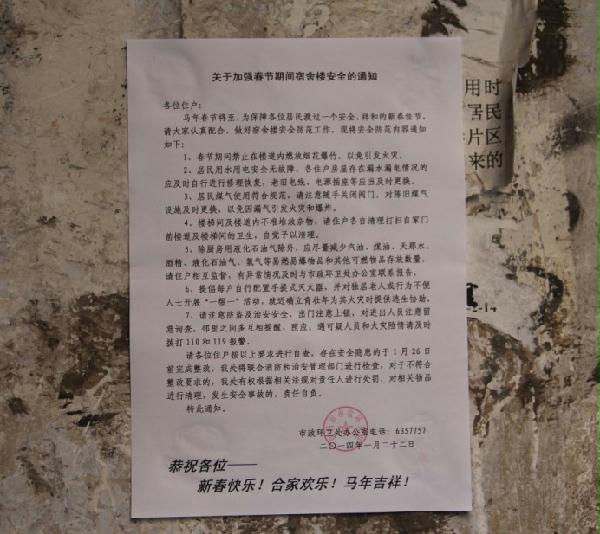 关于加强春节期间宿舍楼安全的通知
各位住户：
马年春节将至，为保障各位居民渡过一个安全、祥和的新春佳节，
请大家认真配合，做好宿舍楼安全防范工作，现将安全防范内容通知
如下：
1、春节期间禁止在楼道内燃放烟花爆竹，以免引发火灾。
2、居民用水用电安全无故障。各住户房屋存在漏水漏电情况的
应及时自行进行修理恢复，老旧电线、电源插座等应当及时更换。
3、居民煤气使用符合规范，请注意随手关闭阀门，对陈旧煤气
设施及时更换，以免因漏气引发火灾和爆炸。
4、楼梯间及楼道内不准堆放杂物，请住户各自清理打扫自家门
前楼道及楼梯间的卫生，自觉予以清理。
5、除厨房用液化石油气除外，应尽量减少汽油、煤油、天那水、
酒精、液化石油气、氢气等易燃易爆物品和其他可燃物品存放数量，
请住户相互监督，有异常情况及时与市政环卫处办公室联系报告。
6、提倡每户自行配置手提式灭火器，并对独居老人或行为不便
人士开展“一帮一”活动，就近确立青壮年为其火灾时提供逃生协助。
7、请注意防盗及治安安全，出门注意上锁，对进出人员注意留
意询查，邻里之间多互相提醒、照应，遇可疑人员和火灾险情请及时
拨打110和119报警。
请各位住户按以上要求进行自查，存在安全隐患的于1月26日
前完成整改，我处将联合消防和治安管理部门进行检查，对于不符合
整改要求的，我处有权根据相关法规对责任人进行处罚，对相关物品
进行清理，发生安全事故的，责任自负。
特此通知。
市政环卫处办公室电话：6357757
二〇一四年一月二十二日
恭祝各位——
新春快乐！合家欢乐！马年吉祥！
用时
居民
片区
来的
2-14